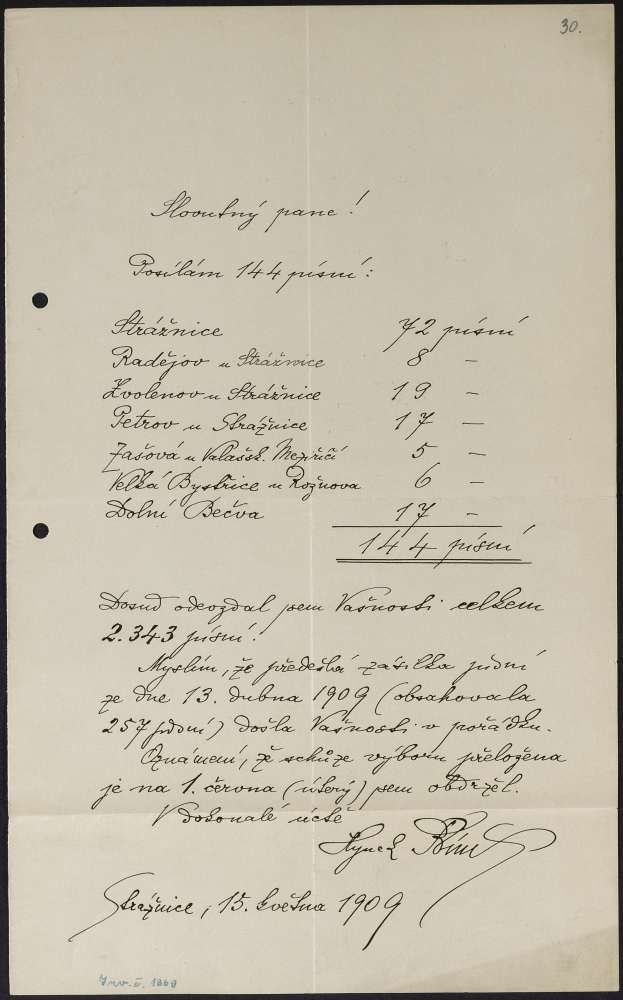 30.
Slovutný pane!
Posílám 144 písní:
Strážnice 72 písní
Radějov u Strážnice 8 –
Zvolenov u Strážnice 19 –
Petrov u Strážnice 17 –
Zašová u Valašsk. Meziříčí 5 –
Velká Bystřice u Rožnova 6 –
Dolní Bečva 17 –
144 písní
Dosud odevzdal jsem Vašnosti celkem
2.343 písní.
Myslím, že předešlá zásilka písní
ze dne 13. dubna 1909 (obsahovala
257 písní) došla Vašnosti v pořádku.
Oznámení, že schůze výboru přeložena
je na 1. června (úterý) jsem obdržel.
V dokonalé úctě
Hynek Bím
Strážnice, 15. května 1909
Inv. č. 1869